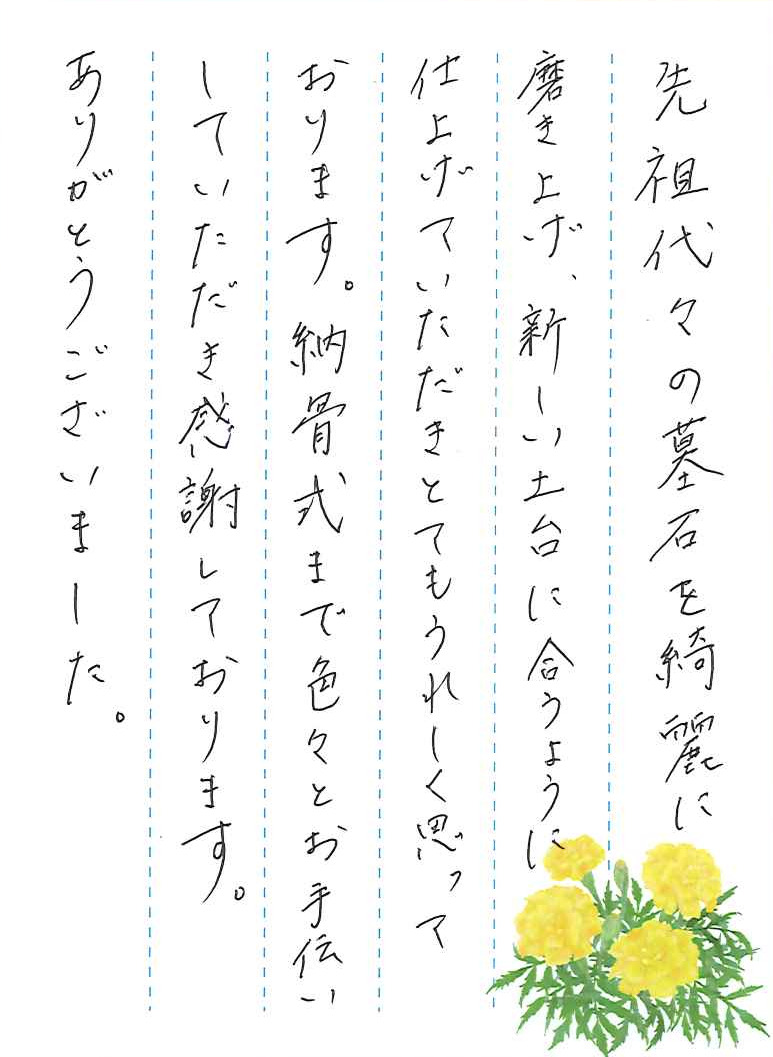 先祖代々の墓石を綺麗に
磨き上げ、新しい土台に合うように
仕上げていただきとてもうれしく思って
おります。納骨式まで色々とお手伝い
していただき感謝しております。
ありがとうございました。